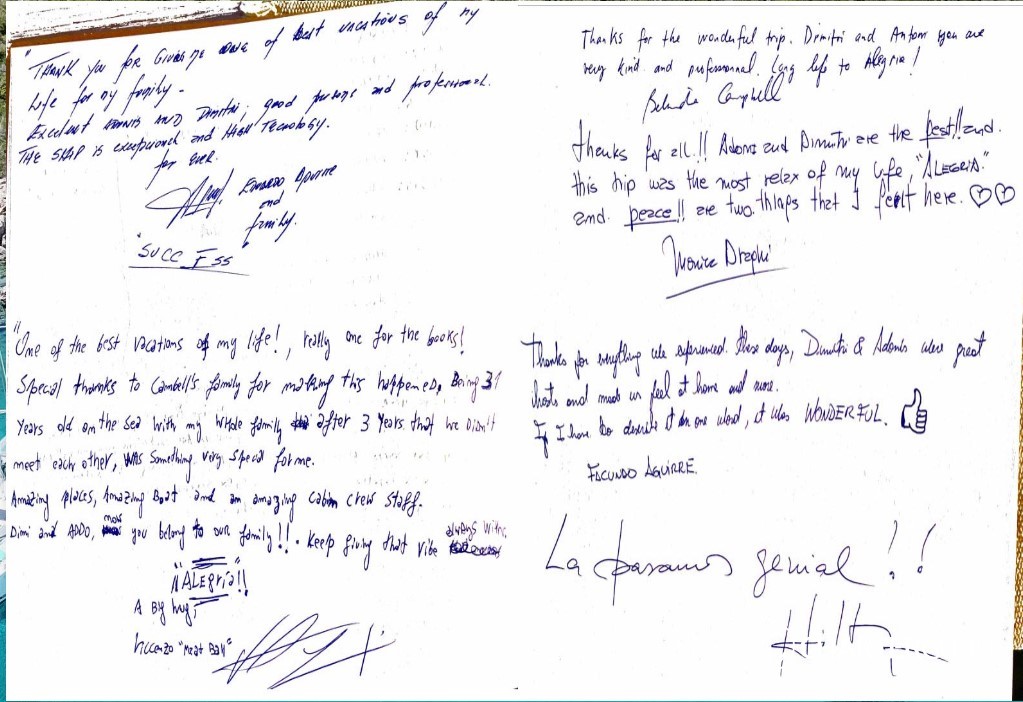 "THANK YOU FOR Giving me one of best vacations of my
Life for my family.
Excelent ADONIS AND Dimitri, good persons and professional.
THE SHIP is exceptional and HIGH Tecnology.
for ever.
EDUARDO AGUIRRE
and
family.
"SUCCESS"
"One of the best vacations of my life!, really one for the books!
Special thanks to Cambell's family for making this happened, Being 31
Years old on the sea with my whole family after 3 Years that we Didn't
meet each other, was Something very special for me.
Amazing places, Amazing Boat and an amazing cabin crew staff.
Dimi and ADDO, now you belong to our family!!. Keep giving that vibe always with:
"ALEgria!!"
A Big hug,
Viccenzo "Meat Ball"
Thanks for the wonderful trip. Dimitri and Antoni you are
very kind and professionnal. Long life to Alegria!
Belinda Campbell
Thanks for all!! Adonis and Dimitri are the best!! and
this trip was the most relax of my life, "ALEGRIA"
and peace!! are two things that I felt here. ♡♡
Monica Draghi
Thanks for everything we experienced these days, Dimitri & Adonis were great
hosts and made us feel at home and more.
If I have to describe it in one word, it was WONDERFUL.
FACUNDO AGUIRRE.
La pasamos genial!!